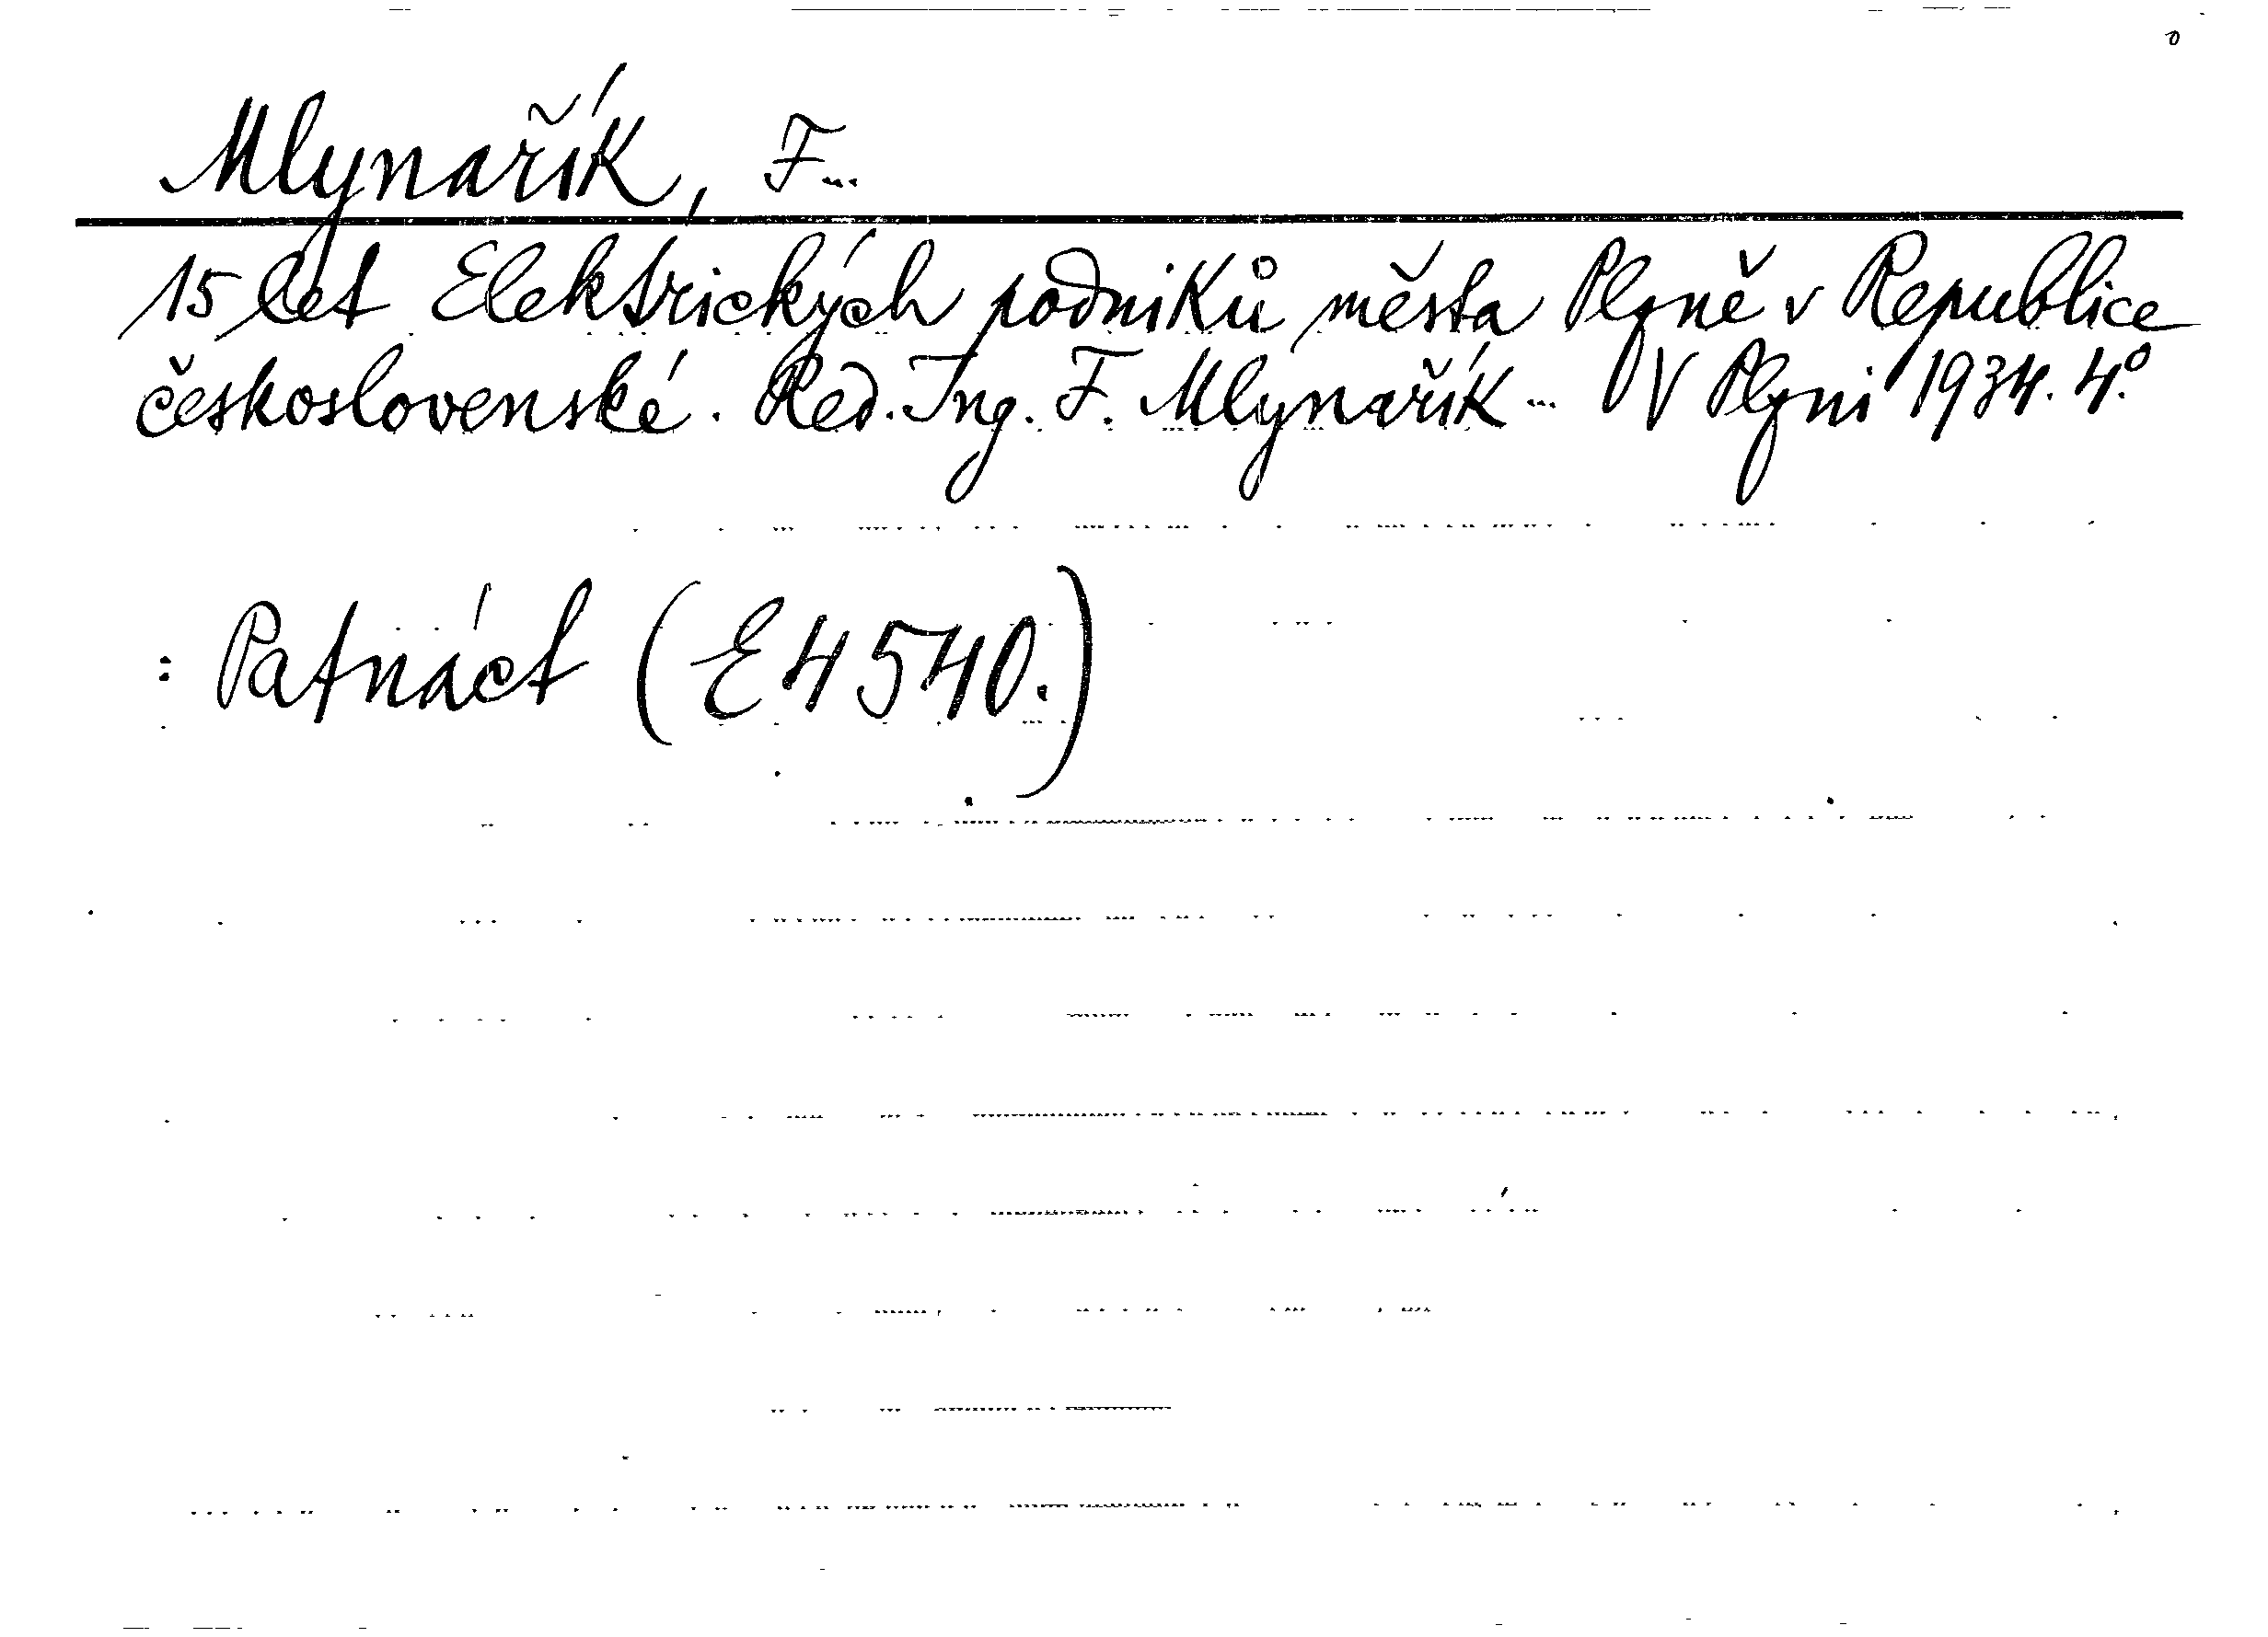 Mlynařík, F...
15 let Elektrických podniků města Plzně v Republice
československé. Red. Ing. F. Mlynařík... V Plzni 1934. 4.°
: Patnáct (E 4540.)